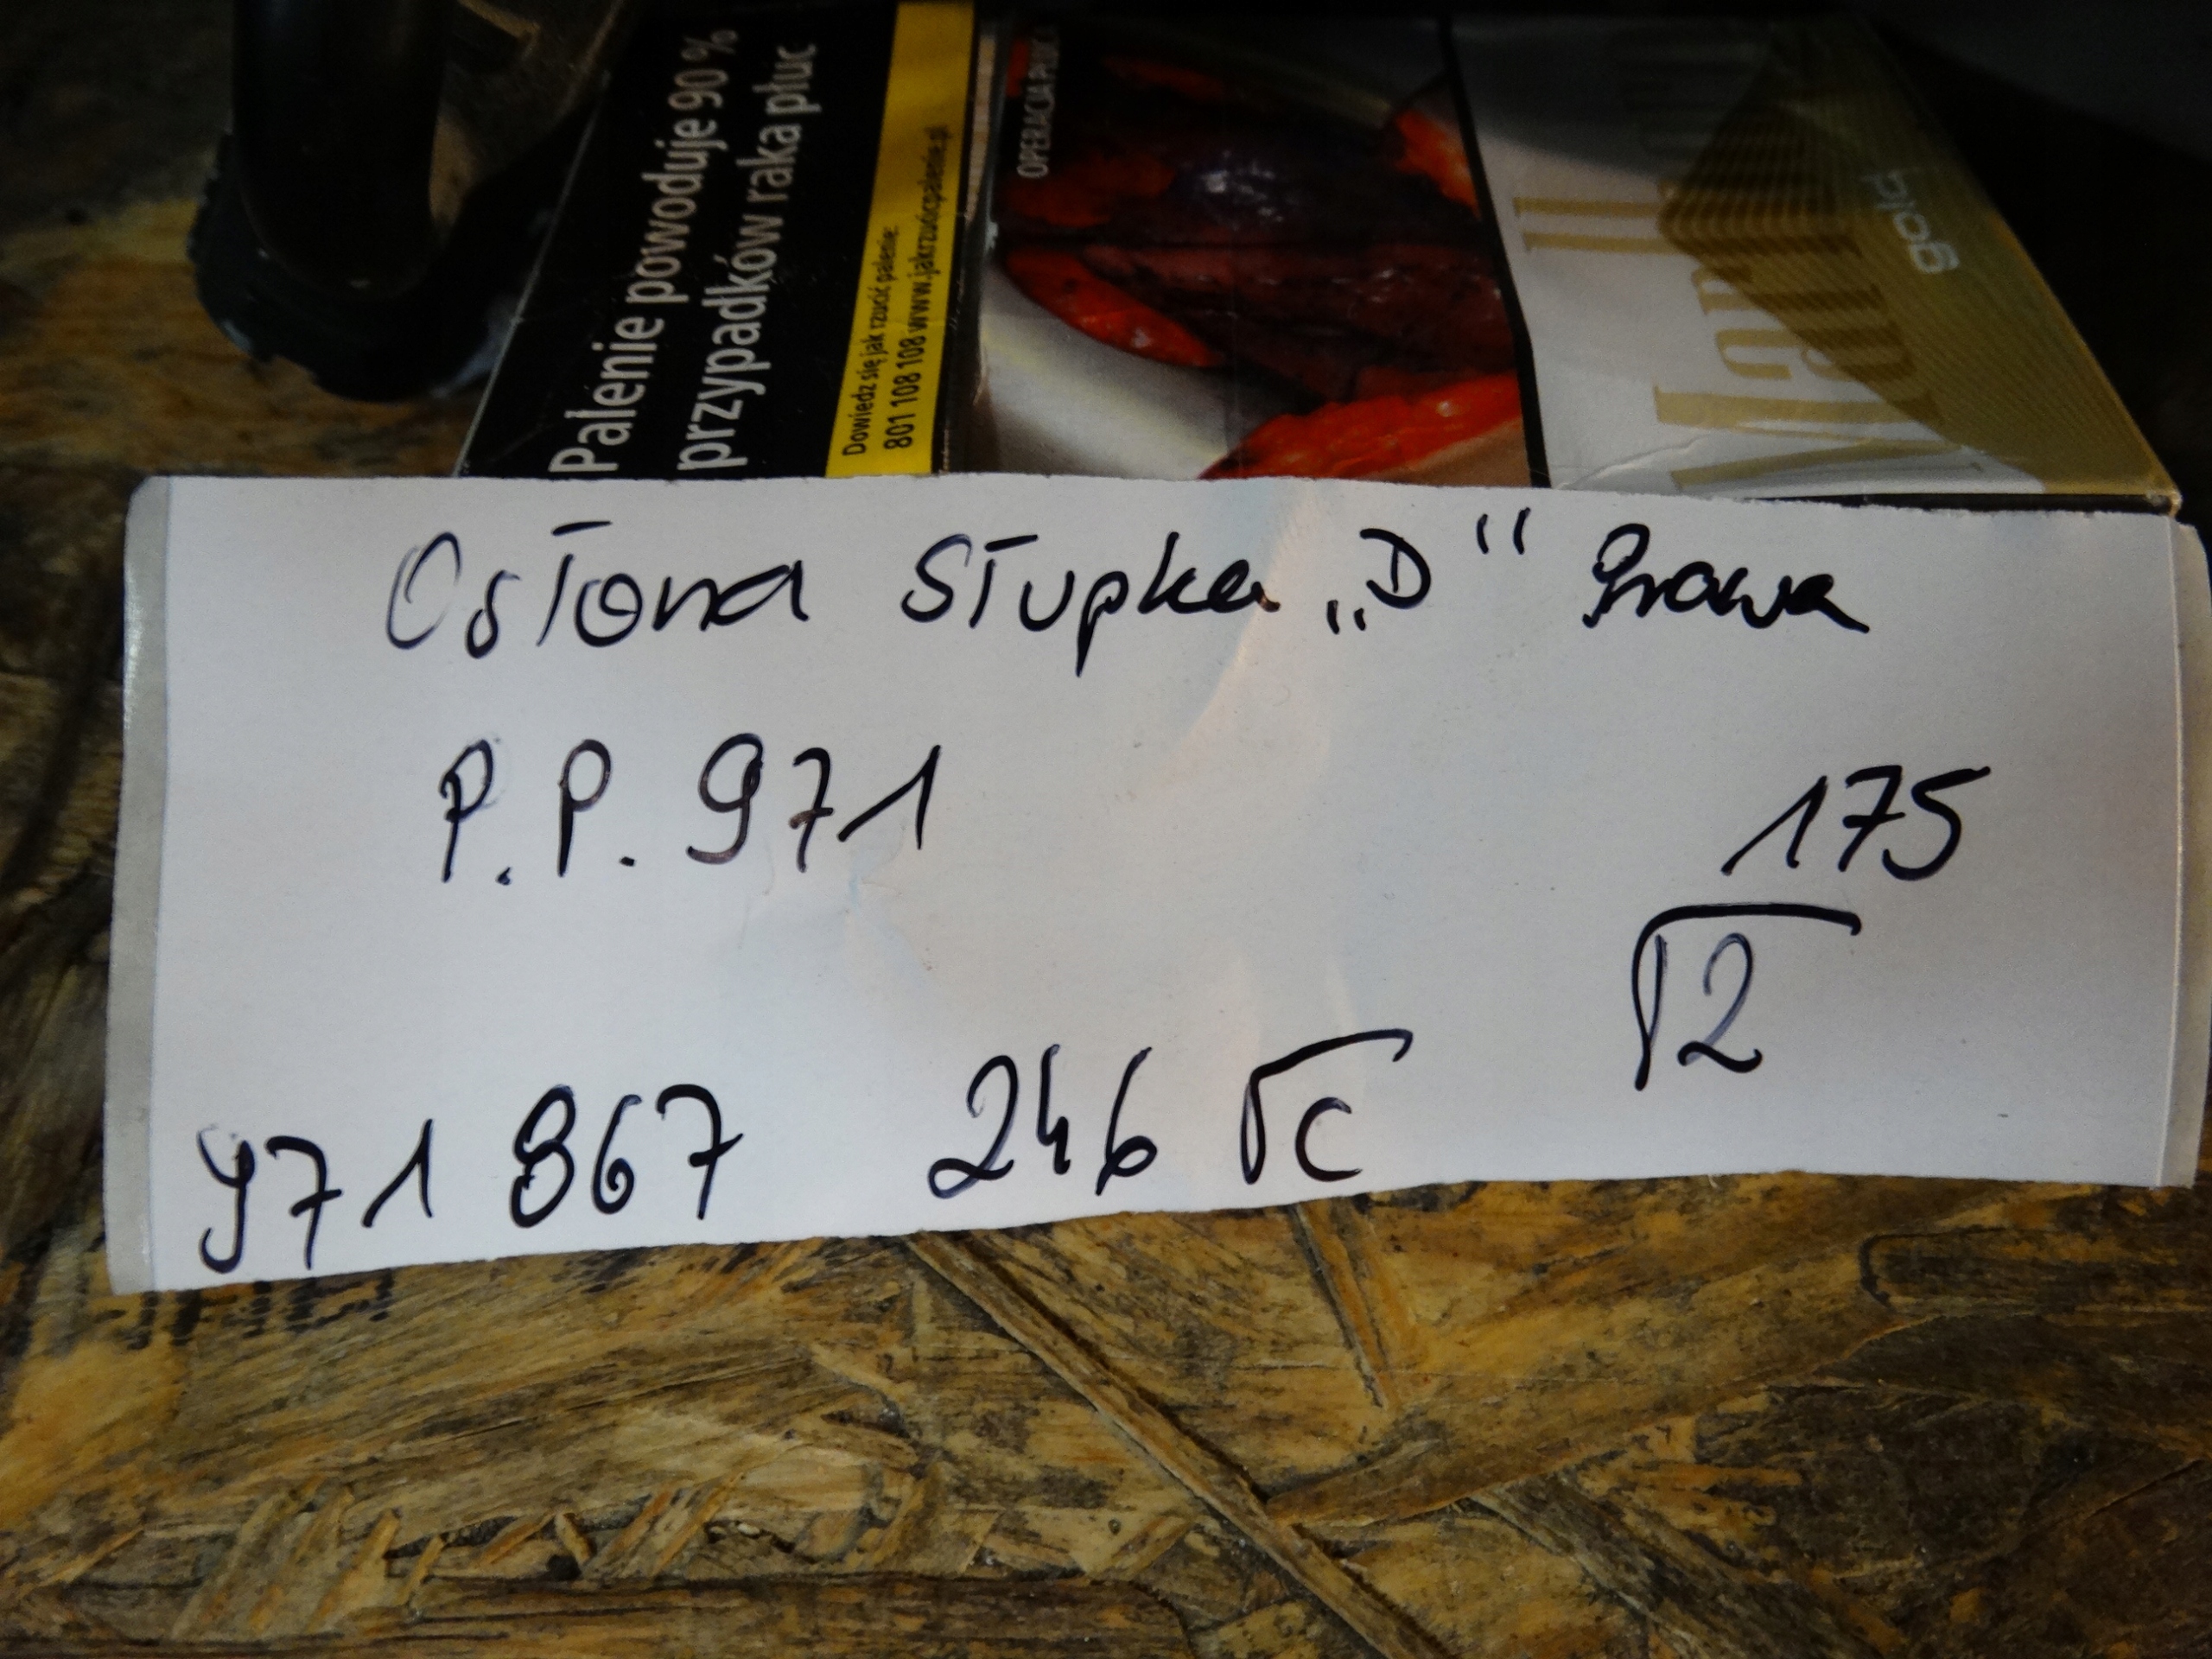 Palenie powoduje 90 %
przypadków raka płuc
Dowiedz się jak rzucić palenie:
801 108 108 www.jakrzucicpalenie.pl
OPERACJA PŁUC
Marl
gold
Osłona Słupka „D" Prawa
P.P. 971
175
√2
971 867 246 √C